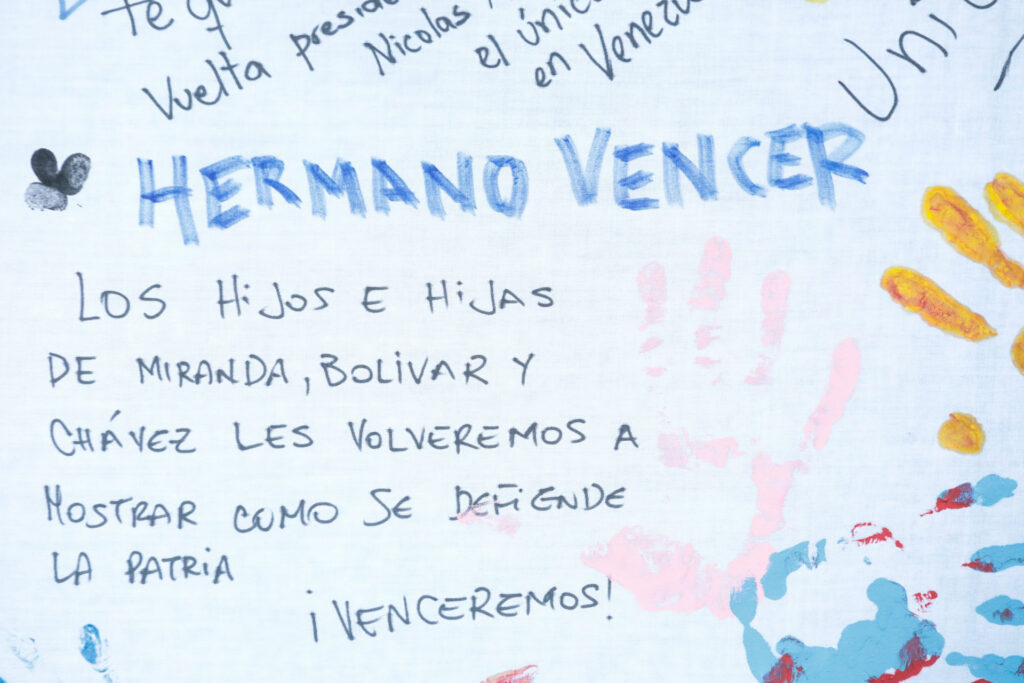 Te
Vuelta
Nicolas
el único
en
HERMANO VENCER
LOS HiJOS E HiJAS
DE MIRANDA, BOLiVAR Y
CHÁVEZ LES VOLVEREMOS A
MOSTRAR COMO SE DEFIENDE
LA PATRiA
¡VENCEREMOS!